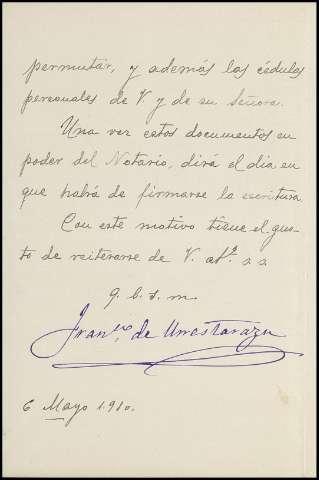 permutar, y además las cédulas
personales de V. y de su Señora.
Una vez estos documentos en
poder del Notario, dirá el dia en
que habrá de firmarse la escritura
Con este motivo tiene el gus-
to de reiterarse de V. atº. s. s
q. b. s. m.
Franco. de Unrestarazu
6 Mayo 1910.